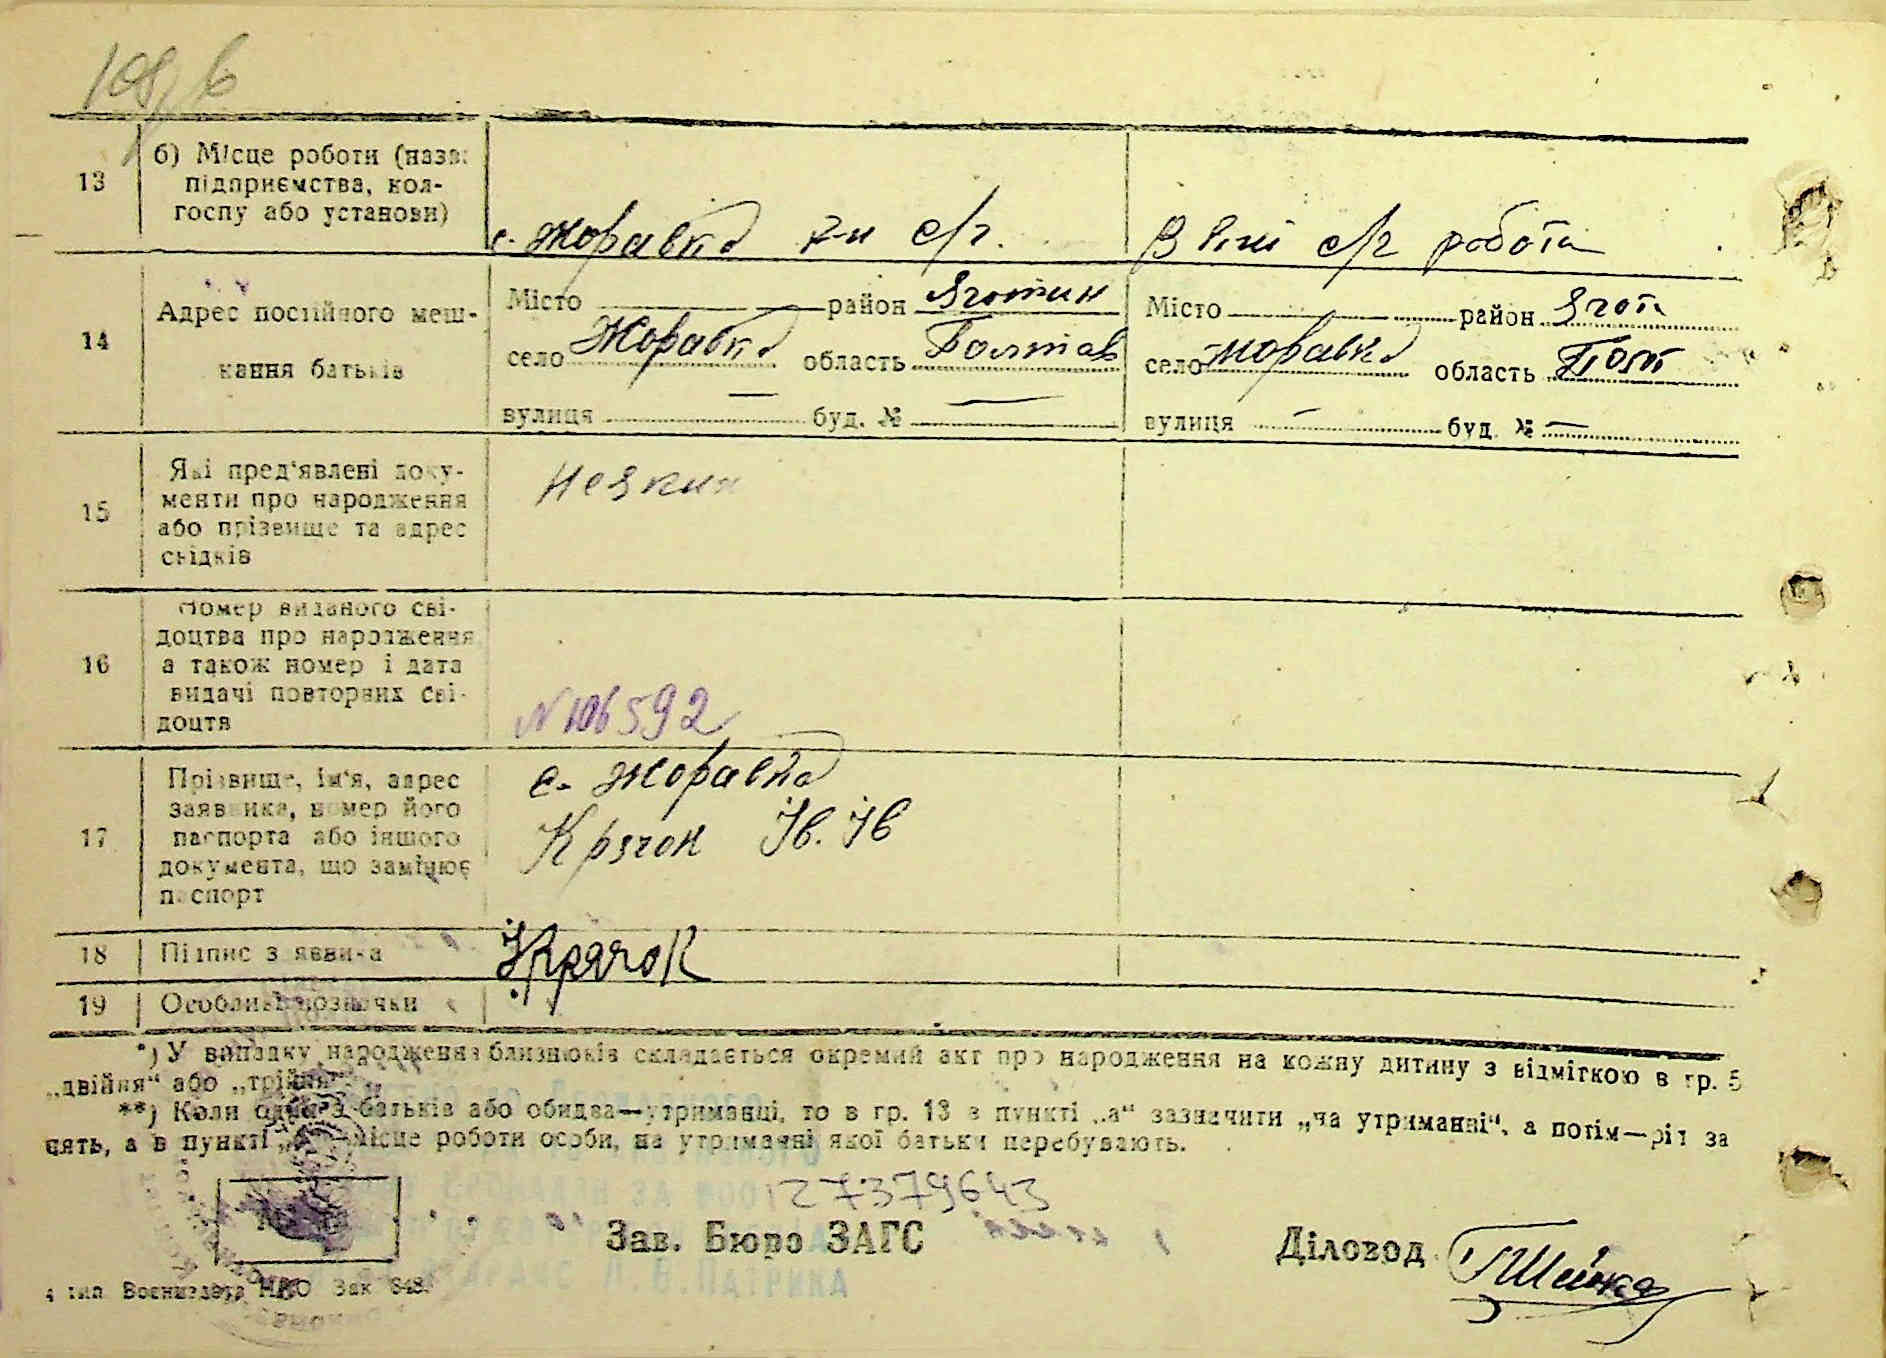 13
б) Місце роботи (назва
підприємства, кол-
госпу або установи)
с. Жоравка р-н с/г.
с/г робота
14
Адрес постійного меш-
кання батьків
Місто район Яготин
село Жоравка область Полтав
вулиця — буд. № —
Місто район Ягот
село Жоравка область Полт
вулиця — буд. № —
15
Які пред'явлені доку-
менти про народження
або прізвище та адрес
свідків
16
Номер виданого сві-
доцтва про народження
а також номер і дата
видачі повторних сві-
доцтв
N 106592
17
Прізвище, ім'я, адрес
заявника, номер його
паспорта або іншого
документа, що замінює
паспорт
с. Жоравка
Крячок Ів. Ів
18
Підпис заявника
Крячок
19
Особливі позначки
*) У випадку народження близнюків складається окремий акт про народження на кожну дитину з відміткою в гр. 5
„двійня“ або „трійня“.
**) Коли один з батьків або обидва—утриманці, то в гр. 13 в пункті „а“ зазначити „на утриманні“, а потім—рід за
нять, а в пункті місце роботи особи, на утриманні якої батьки перебувають.
27379643
Зав. Бюро ЗАГС
Діловод
4 тип. Воениздата НКО Зак 848.